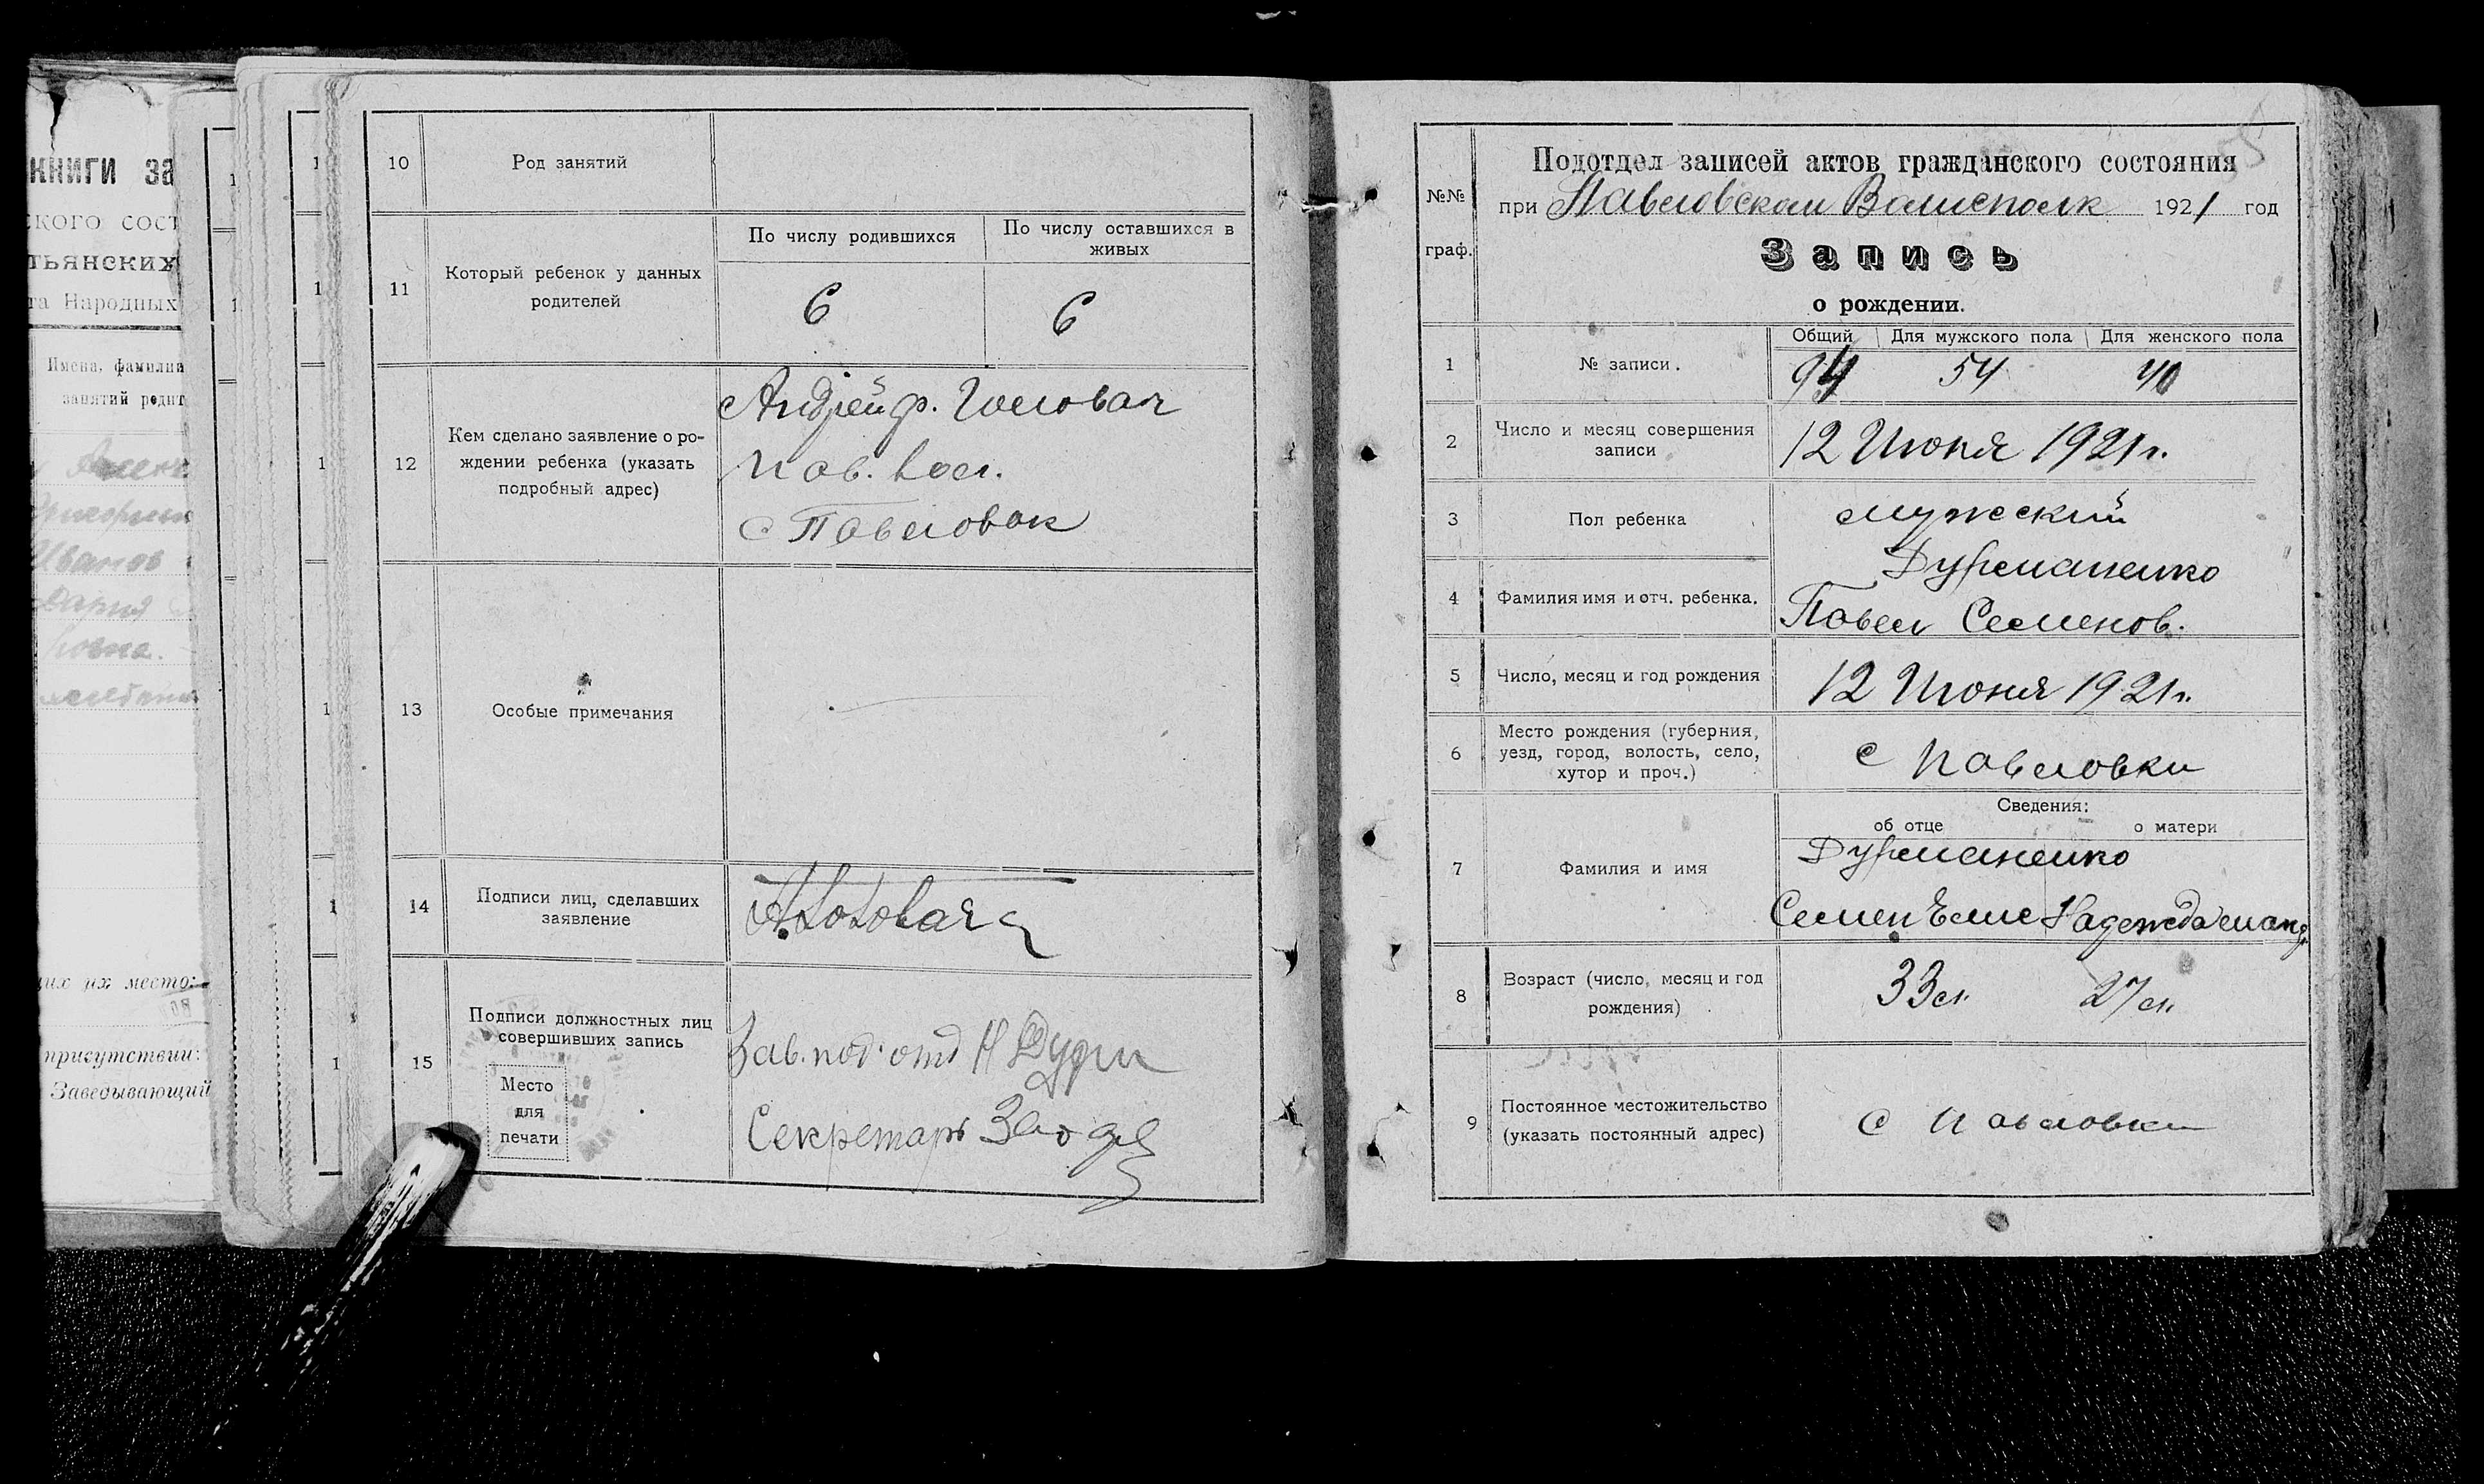 КНИГИ ЗА
ского сост
тьянских
та Народных
Имена, фамилия
занятий родит
Иванов
Дария
щих их место:
присутствии:
Заведывающий
10 Род занятий
11 Который ребенок у данных
родителей
По числу родившихся
По числу оставшихся в
живых
6 6
12 Кем сделано заявление о ро-
ждении ребенка (указать
подробный адрес)
Андрей Ф. Головач
Пав. вол.
с Павловок
13 Особые примечания
14 Подписи лиц, сделавших
заявление
А. Головач
15 Подписи должностных лиц
совершивших запись
Место
для
печати
Зав. под. отд Н
Секретарь
№№
граф.
Подотдел записей актов гражданского состояния
при Павловском Волисполк 1921 год
Запись
о рождении.
Общий Для мужского пола Для женского пола
1 № записи. 94 54 40
2 Число и месяц совершения
записи
12 Июня 1921 г.
3 Пол ребенка мужеский
4 Фамилия имя и отч. ребенка.
Дурманенко
Павел Семенов.
5 Число, месяц и год рождения 12 Июня 1921 г.
6 Место рождения (губерния,
уезд, город, волость, село,
хутор и проч.)
с Павловки
Сведения:
об отце о матери
7 Фамилия и имя
Дурманенко
Семен Надежда
8 Возраст (число, месяц и год
рождения)
33 л. 27 л.
9 Постоянное местожительство
(указать постоянный адрес)
с Павловки